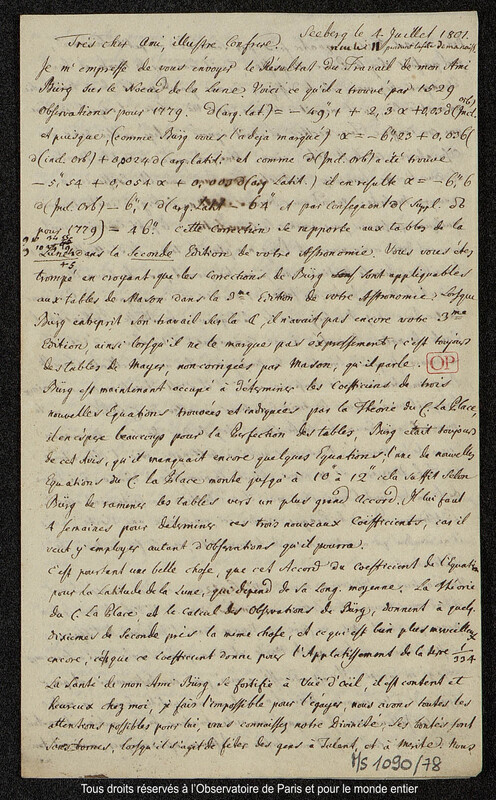 Seeberg le 4 Juillet 1801.
Très cher Ami, illustre Confrere.
Je m'empresse de vous envoyer le Résultat du Travail de mon Ami
Bürg sur le Noeud de la Lune. Voici ce qu'il a trouvé par 1529
Observations pour 1779. d(arg. lat) = – 49",1 + 2,3 x + 0,03 d(Incl. orb)
et puisque, (comme Bürg vous l'a deja marqué) x = – 6",23 + 0,036
d(incl. orb) + 0,0024 d(arg. latit. et comme d(Incl. orb) a été trouvé
– 5",54 + 0,054 x + 0,000 d(arg. Latit.) il en resulte x = – 6",6
d(Incl. Orb) – 6", 1 d(arg. Latit – 64" et par consequent d(Suppl. ☊
pour 1779) = 46". cette correction se rapporte aux tables de la
Lune dans la Seconde Edition de votre Astronomie. Vous vous étez
trompé en croyant que les corrections de Bürg sont appliquables
aux tables de Mason dans la 3me Edition de votre Astronomie. Lorsque
Bürg entreprit son travail sur la ☾, il n'avait pas encore votre 3me
Edition ainsi lorsqu'il ne le marque pas expressement, c'est toujours
des tables de Mayer, non corrigées par Mason, qu'il parle.
OP
Bürg est maintenant occupé à déterminer les Coefficiens de trois
nouvelles Equations trouvées et indiquées par la Théorie du C. La Place,
il en espere beaucoup pour la Perfection des tables, Bürg était toujours
de cet Avis, qu'il manquait encore quelques Equations. l'une de nouvelles
Equations du C. la Place monte jusqu'à 10" à 12" cela suffit selon
Bürg de ramener les tables vers un plus grand accord. Il lui faut
4 semaines pour déterminer ces trois nouveaux Coëfficients, car il
veut y employer autant d'Observations qu'il pourra.
C'est pourtant une belle chose, que cet Accord du Coefficient de l'Equation
pour la Latitude de la Lune, qui dépend de sa Long. moyenne. La Théorie
du C. La Place et le calcul des Observations de Bürg, donnent à quelq.
dixiemes de Seconde près la meme chose, et ce qui est bien plus merveilleux
encore, c'est que ce coefficient donne pour l'Applatissement de la terre 1/334
La Santé de mon Ami Bürg se fortifie à vuë d'oeil, il est content et
heureux chez moi, je fais l'impossible pour l'egayer, nous avons toutes les
attentions possibles pour lui, vous connaissez notre Divinité; Ses bontés sont
sans bornes, lorsqu'il s'agit de fêter des gens à Talent, et à Merite. Nous
Ms 1090/78
Tous droits réservés à l'Observatoire de Paris et pour le monde entier